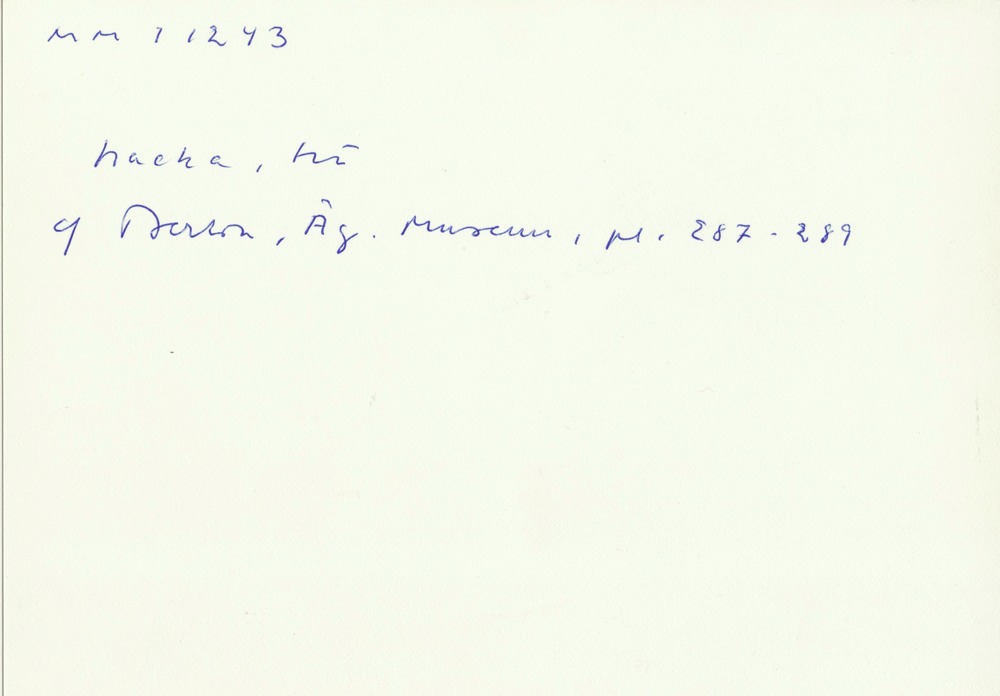 MM 11243
hacka, trä
cf Berlin, Äg. Museum, pl. 287-289